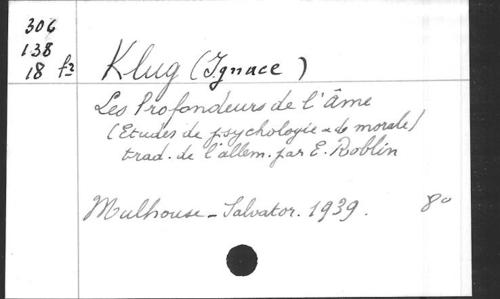 306
138
18 f²
Klug (Ignace)
Les Profondeurs de l'âme
(Etudes de psychologie & de morale)
trad. de l'allem. par E. Roblin
Mulhouse - Salvator. 1939. 8°